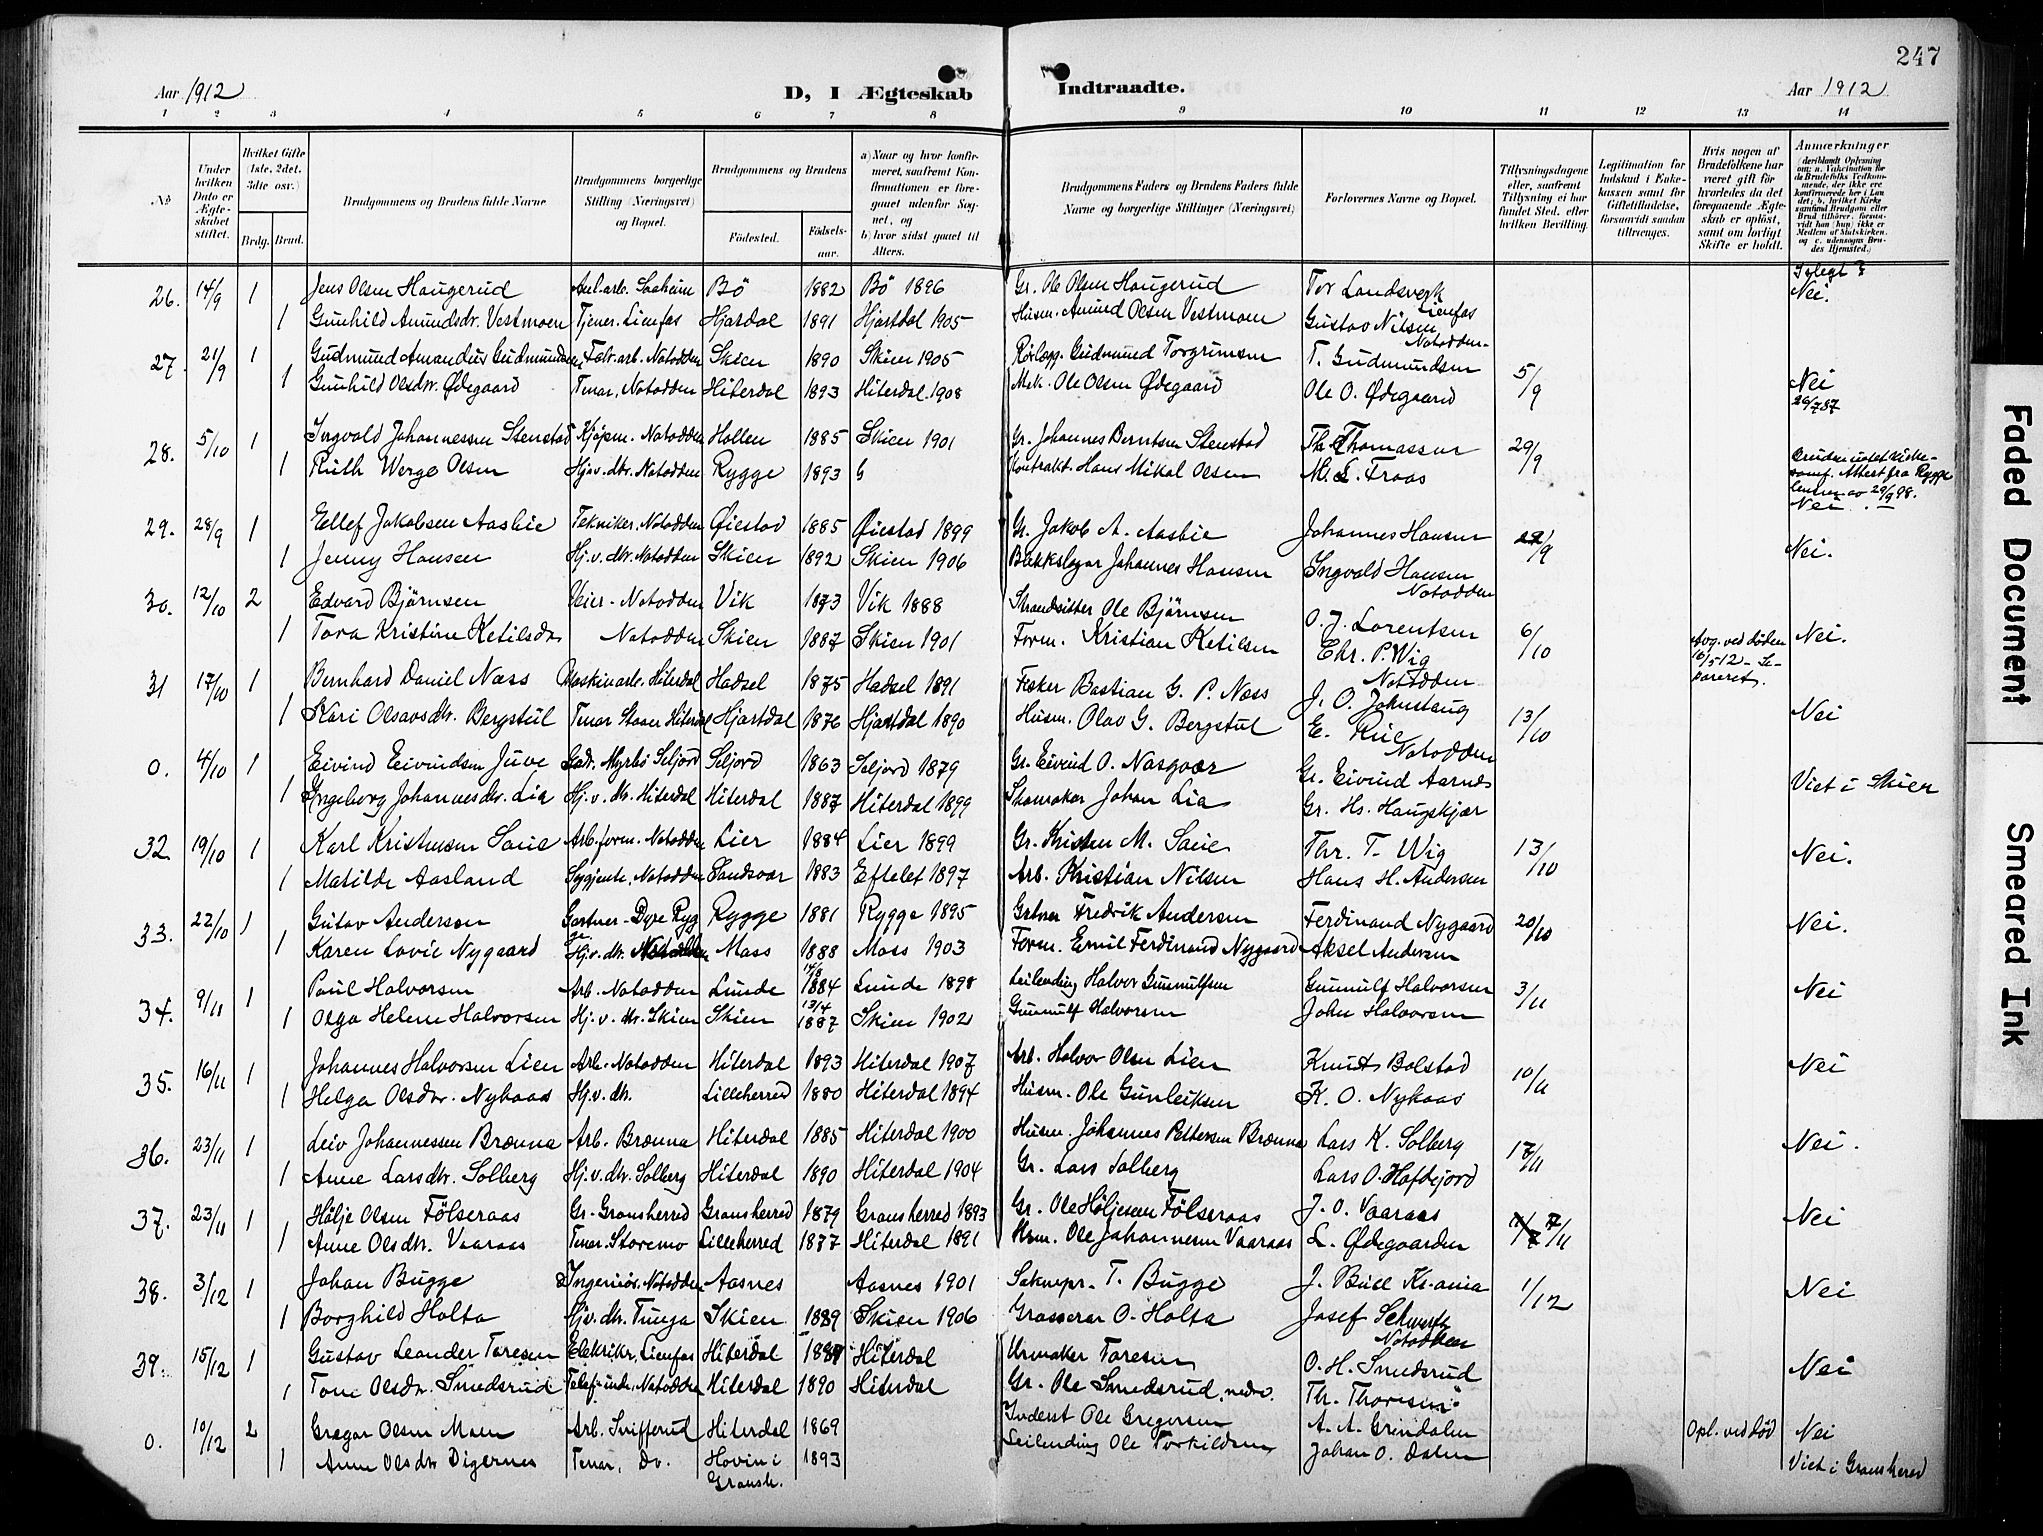 247
Aar 1912
D, I Ægteskab Indtraadte.
Aar 1912
1 2 3 4 5 6 7 8 9 10 11 12 13 14
No
Under hvilken Dato er Ægteskabet stiftet.
Hvilket Gifte (1ste, 2det, 3die osv.)
Brdg. Brud.
Brudgommens og Brudens fulde Navne
Brudgommens borgerlige Stilling (Næringsvei) og Bopæl.
Brudgommens og Brudens
Födested. Födselsaar.
a) Naar og hvor konfirmeret, saafremt Konfirmationen er foregaaet udenfor Sognet, og
b) hvor sidst gaaet til Alters.
Brudgommens Faders og Brudens Faders fulde Navne og borgerlige Stillinger (Næringsvei)
Forlovernes Navne og Bopæl.
Tillysningsdagene eller, saafremt Tillysning ei har fundet Sted, efter hvilken Bevilling.
Legitimation for Indskud i Enkekassen samt for Giftetilladelse, forsaavidt saadan tiltrænges.
Hvis nogen af Brudefolkene har været gift før hvorledes da det foregaaende Ægteskab er opløst, samt om lovligt Skifte er holdt.
Anmærkninger
26. 14/9 1 Jens Olsen Haugerud Anl.arb. Saaheim Bö 1882 Bö 1896 Gr. Ole Olsen Haugerud Tor Landsverk Lienfos Nei.
1 Gunhild Amundsdr. Vestmoen Tjener. Lienfos Hjartdal 1891 Hjartdal 1905 Husm. Amund Olsen Vestmoen Gustav Nilsen Notodden
27. 21/9 1 Gudmund Amandus Gudmundsen Fabr.arb. Notodden Skien 1890 Skien 1905 Rørlægg. Gudmund Torgrimsen T. Gudmundsen 5/9
1 Gunhild Olsdr. Ødegaard Tenar, Notodden Hiterdal 1893 Hiterdal 1908 Mek. Ole Olsen Ødegaard Ole O. Ødegaard Nei
28. 5/10 1 Ingvald Johannessen Stenstad Kjöpm. Notodden Hollen 1885 Skien 1901 Gr. Johannes Berntsen Stenstad Th. Thomassen 29/9
1 Ruth Werge Olsen Hj.v.dtr. Notodden Rygge 1893 Kontrakt. Hans Mikal Olsen M. L. Traas
29. 28/9 1 Ellef Jakobsen Aasbie Tekniker. Notodden Øiestad 1885 Øiestad 1899 Gr. Jakob A. Aasbie Johannes Hansen 22/9 Nei
1 Jenny Hansen Hj.v.dtr. Notodden Skien 1892 Skien 1906 Blikkslager Johannes Hansen Ingvald Hansen Notodden Nei.
30. 12/10 2 Edvard Björnsen Notodden Vik 1873 Vik 1888 Strandsitter Ole Björnsen O. J. Lorentsen 6/10 Avg. ved döden 16/5 12 - Separeret. Nei.
1 Tora Kristine Ketilsdr Notodden Skien 1887 Skien 1901 Form. Kristian Ketilsen Chr. P. Wig Notodden
31 17/10 1 Bernhard Daniel Næss Maskinarb. Hiterdal Hadsel 1875 Hadsel 1891 Fisker Bastian G. P. Næss
1 Kari Olsavsdr. Bergstul Tenar Hiterdal Hjartdal 1876 Hjartdal 1890 Husm. Olav G. Bergstul E. Rue Notodden 13/10 Nei
0. 4/10 1 Eivind Eivindsen Juve Seljord Seljord 1863 Seljord 1879 Gr. Eivind O. Nasgaar Gr. Eivind Aarnes
1 Ingeborg Johannesdr. Lia Hj.v.dtr. Hiterdal Hiterdal 1887 Hiterdal 1899 Skomaker Johan Lia Gr. Hs. Haugskjær Viet i Skien
32. 19/10 1 Karl Kristensen Saue Arb.form. Notodden Lier 1884 Lier 1899 Gr. Kristen M. Saue Thr. T. Wig 13/10 Nei.
1 Matilde Aasland Sygjente, Notodden Sandsvær 1883 Eftelet 1897 Arb. Kristian Nilsen Hans H. Andersen
33. 22/10 1 Gustav Andersen Gartner Rygge 1881 Rygge 1895 Gartner Fredrik Andersen Ferdinand Nygaard 20/10 Nei.
1 Karen Lovie Nygaard Hj.v.dtr. Notodden Moss 1888 Moss 1903 Form. Emil Ferdinand Nygaard Aksel Andersen
34. 9/11 1 Paul Halvorsen Arb. Notodden Lunde 14/8 1884 Lunde 1898 Leilending Halvor Gunnulfsen Gunnulf Halvorsen 3/11 Nei
1 Olga Helene Halvorsen Hj.v.dtr. Skien Skien 13/4 1887 Skien 1902 Gunnulf Halvorsen John Halvorsen
35. 16/11 1 Johannes Halvorsen Lien Arb. Notodden Hiterdal 1893 Hiterdal 1907 Arb. Halvor Olsen Lien Knut Bolstad 10/11 Nei
1 Helga Olsdr. Nykaas Hj.v.dtr. Lilleherred 1880 Hiterdal 1894 Husm. Ole Gunleiksen K. O. Nykaas
36. 23/11 1 Leiv Johannessen Brænna Arb. Brænna Hiterdal 1885 Hiterdal 1900 Husm. Johannes Pettersen Brænna Lars K. Solberg 17/11 Nei.
1 Anne Larsdtr. Solberg Hj.v.dtr. Solberg Hiterdal 1890 Hiterdal 1904 Gr. Lars Solberg Lars O. Haftejord
37. 23/11 1 Hölje Olsen Fölseraas Gr. Gransherred Gransherred 1879 Gransherred 1893 Gr. Ole Höljesen Fölseraas J. O. Vaaraas 17/11 Nei
1 Anne Olsdtr. Vaaraas Tenar. Storemo Lilleherred 1877 Hiterdal 1891 Hsm. Ole Johannesen Vaaraas L. Ødegaarden
38. 3/12 1 Johan Bugge Ingeniör. Notodden Aasnes Aasnes 1901 Saksøpr. T. Bugge J. Bull Kr.ania 1/12 Nei
1 Borghild Holta Hj.v.dtr. Tinga Skien 1889 Skien 1906 Grosserer O. Holta Josef Schwartz Notodden
39. 15/12 1 Gustav Leander Toresen Elektrikr. Lienfos Hiterdal 1887 Hiterdal Urmaker Toresen O. H. Smedsrud Nei
1 Tone Olsdr. Smedsrud Notodden Hiterdal 1890 Hiterdal Gr. Ole Smedsrud, nedv. Th. Thoresen
0. 10/12 2 Gregar Olsen Moen Arb. Hiterdal 1869 Inderst Ole Gregersen A. A. Grindalen Opl. ved död Nei
1 Anne Olsdtr Digernes Tenar, Do. Hovin i Gransh. 1893 Leilending Ole Torkildsen Johan O. Dalen Viet i Gransherred
Faded Document
Smeared Ink